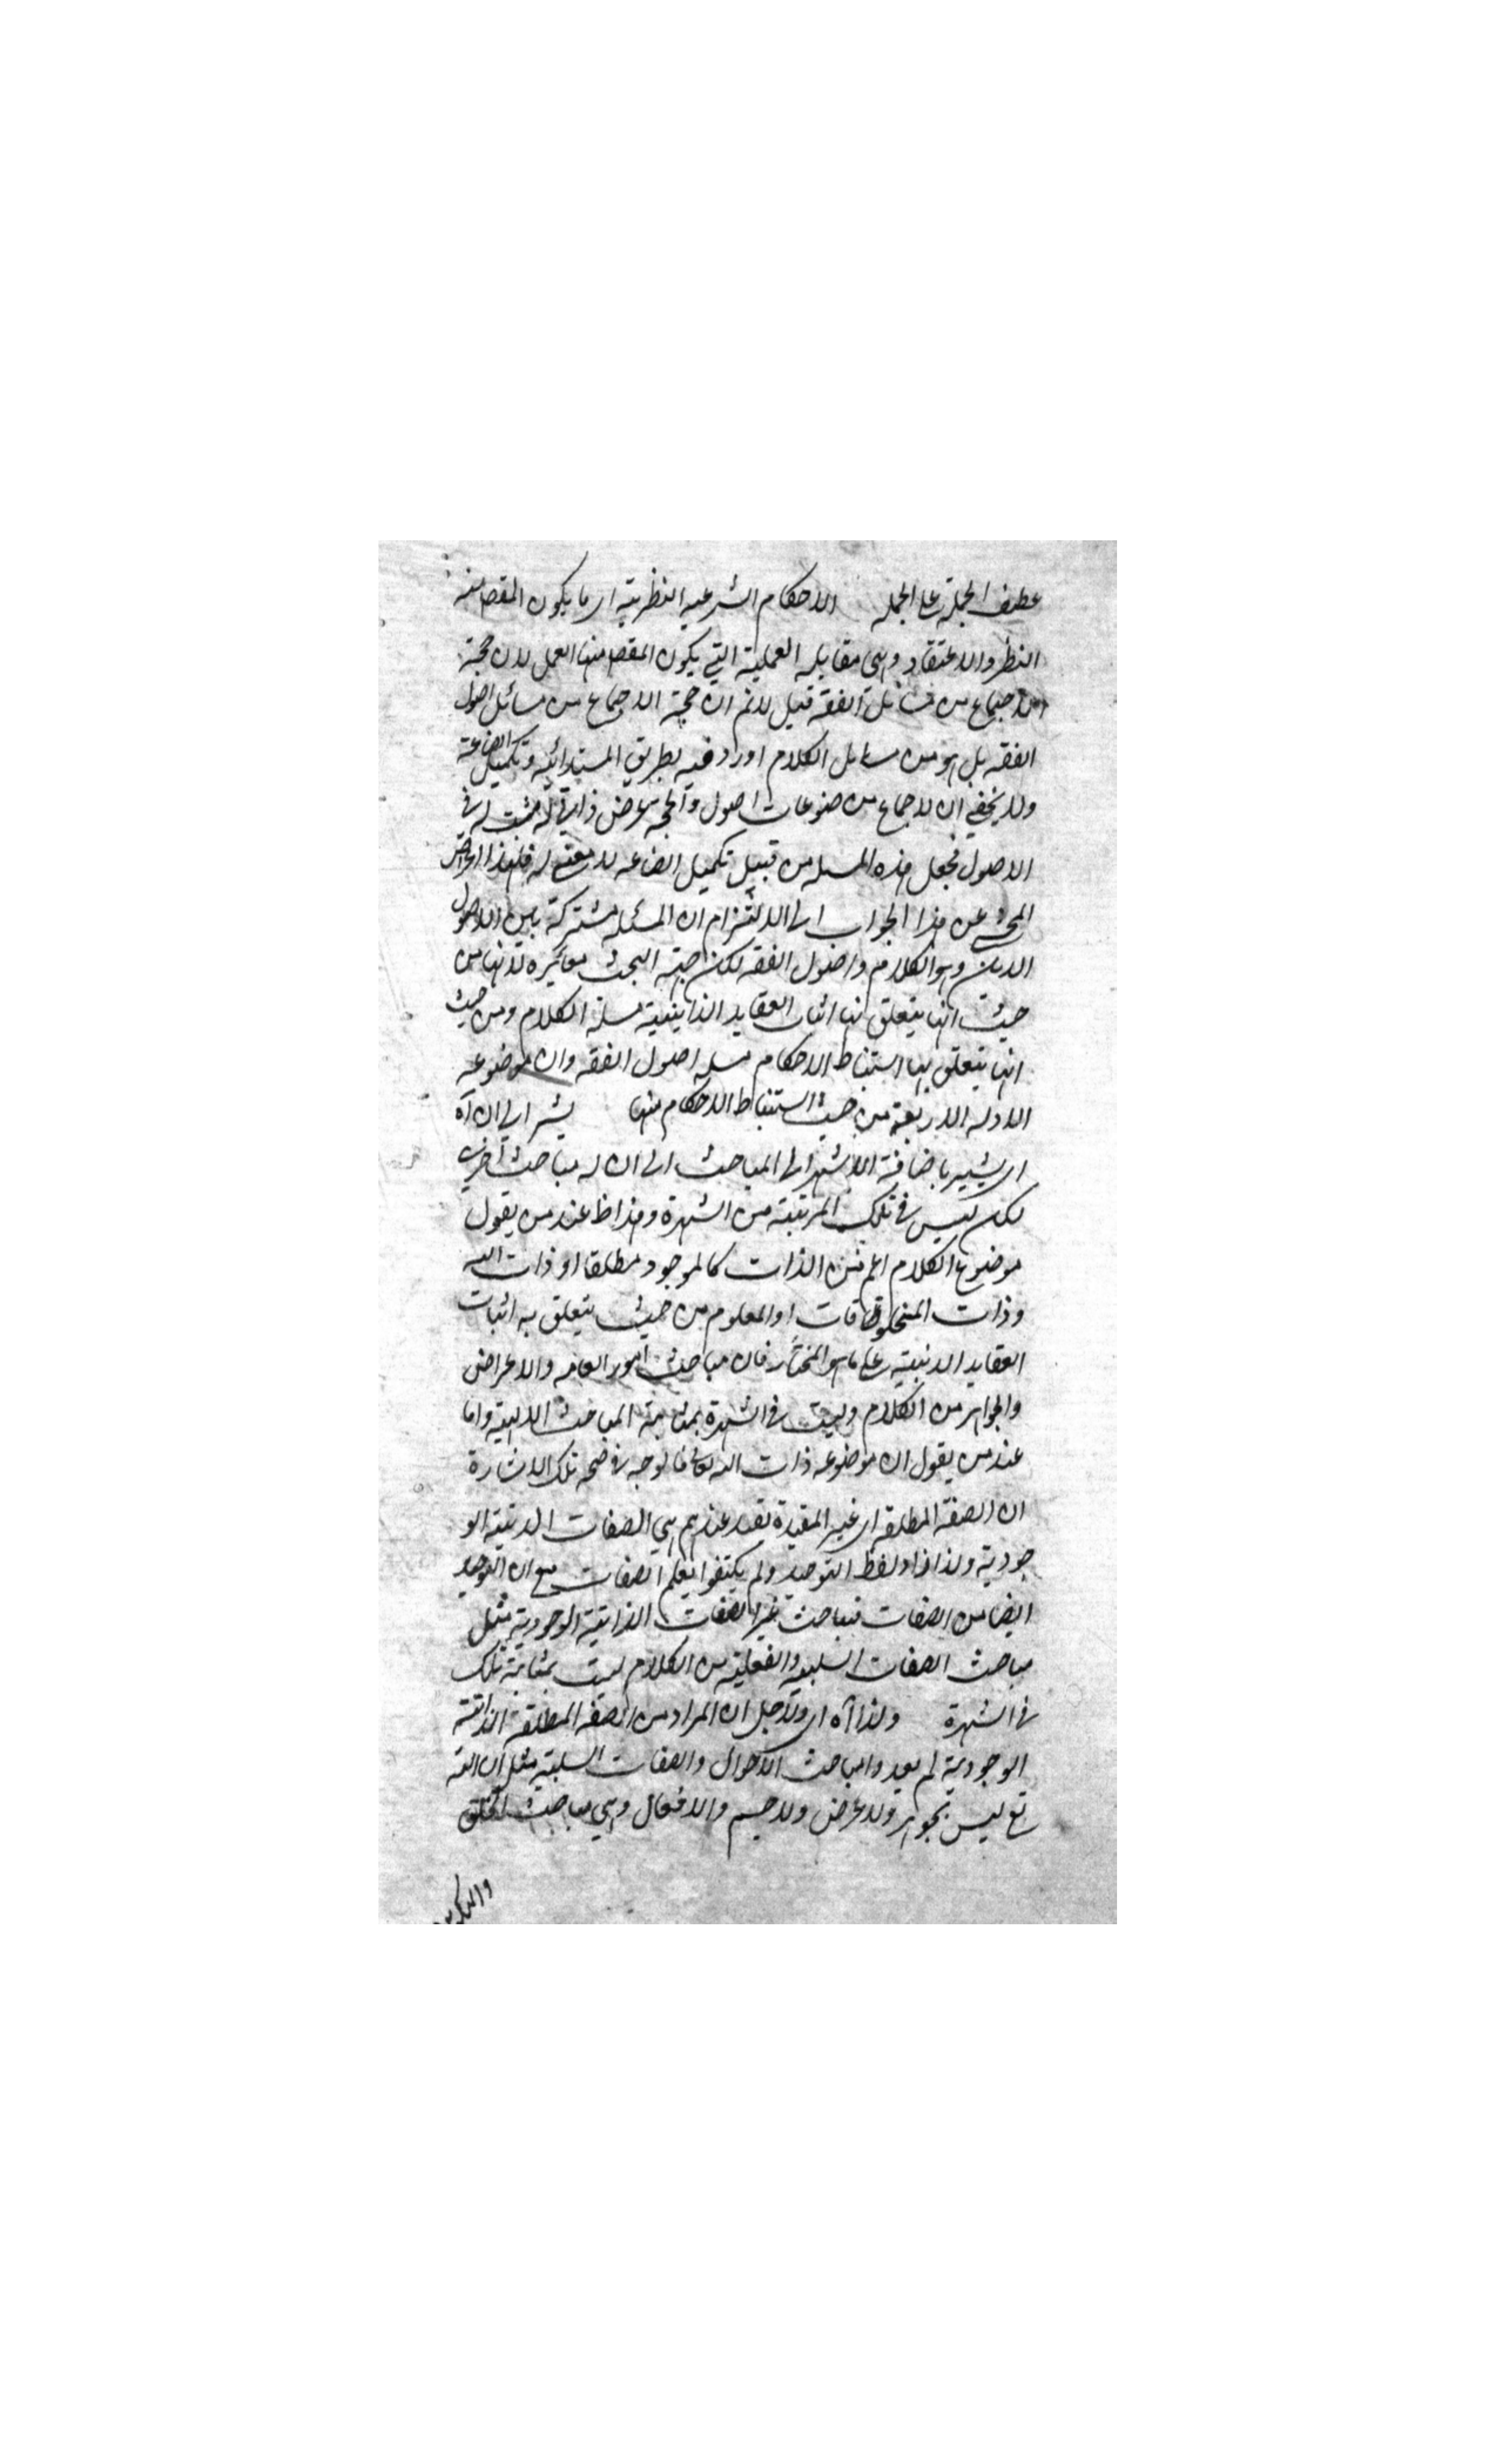 عطف الجملة على الجملة الاحكام الشرعيه النظرية اى ما يكون المقص منه
النظر والاعتقاد وهى مقابله العملية التى يكون المقص منها العمل لان حجة
الاجماع من مسائل الفقه قيل لانم ان حجة الاجماع من مسائل اصول
الفقه بل هو من مسايل الكلام اورد فيه بطريق المبتدائيه وتكميل الصناعة
ولا يخفى ان الاجماع من موضوعات اصول والحجه عرض ذاتى له مثبت له فى
الاصول فجعل هذه المسله من قبيل تكميل الصناعه لا معنى له فلهذا اعرض
المحشى عن هذا الجواب الى الالتزام ان المسئله مشتركة بين الاصول
الدين وهو الكلام واصول الفقه لكن جهة البحث مغايره لانها من
حيث انها يتعلق بها اثبات العقايد الدينية مسلة الكلام ومن حيث
انها يتعلق بها استنباط الاحكام مسله اصول الفقه وان موضوعه
الادله الاربعة من حيث استنباط الاحكام منها يشير الى ان آه
اى يشير باضافة الاشهر الى المباحث الى ان له مباحث اخرى
لكن ليس فى تلك المرتبة من الشهرة وهذا ظ عند من يقول
موضوع الكلام اعم من الذات كالموجود مطلقا او ذات الله
وذات المخلوقات او المعلوم من حيث يتعلق به اثبات
العقايد الدنيية على ما هو المختار فان مباحث امور العامه والاعراض
والجواهر من الكلام وليت فى الشهرة بمثابة المباحث الالهية واما
عند من يقول ان موضوعه ذات الله تعالى فالوجه فى صحة تلك الاشارة
ان الصفة المطلقه اى غير المقيدة بقيد عندهم هى الصفات الذتية الو
جودية ولذا زاد لفظ التوحيد ولم يكتفوا بعلم الصفات مع ان التوحيد
ايضا من الصفات فمباحث غير الصفات الذاتية الوجودية مثل
مباحث الصفات السلبيه والفعليه من الكلام ليت بمثابة تلك
فى الشهرة ولذا آه اى ولاجل ان المراد من الصفه المطلقة الذاتية
الوجودية لم يعدوا مباحث الاحوال والصفات السلبية مثل ان الله
تع ليس بجوهر ولا عرض ولا جسم والافعال وهى مباحث الخلق
والتكوين